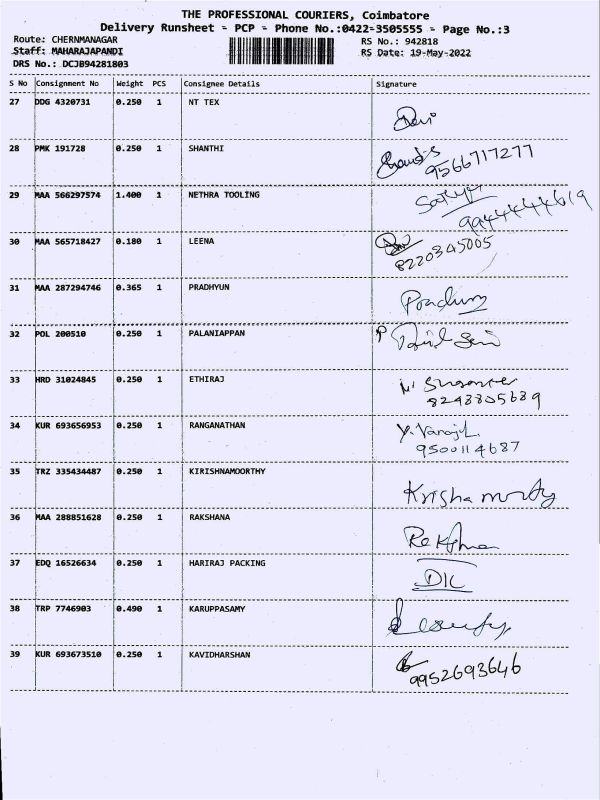 THE PROFESSIONAL COURIERS, Coimbatore
Delivery Runsheet - PCP - Phone No.:0422-3505555 - Page No.:3
Route: CHERNMANAGAR RS No.: 942818
Staff: MAHARAJAPANDI RS Date: 19-May-2022
DRS No.: DCJB94281803
S No Consignment No Weight PCS Consignee Details Signature
27 DDG 4320731 0.250 1 NT TEX
28 PMK 191728 0.250 1 SHANTHI 9566717277
29 MAA 566297574 1.400 1 NETHRA TOOLING Sathya 9944444619
30 MAA 565718427 0.180 1 LEENA 8220345005
31 MAA 287294746 0.365 1 PRADHYUN
32 POL 200510 0.250 1 PALANIAPPAN
33 HRD 31024845 0.250 1 ETHIRAJ 8248805689
34 KUR 693656953 0.250 1 RANGANATHAN 9500114687
35 TRZ 335434487 0.250 1 KIRISHNAMOORTHY
36 MAA 288851628 0.250 1 RAKSHANA
37 EDQ 16526634 0.250 1 HARIRAJ PACKING
38 TRP 7746903 0.490 1 KARUPPASAMY
39 KUR 693673510 0.250 1 KAVIDHARSHAN 9952693646